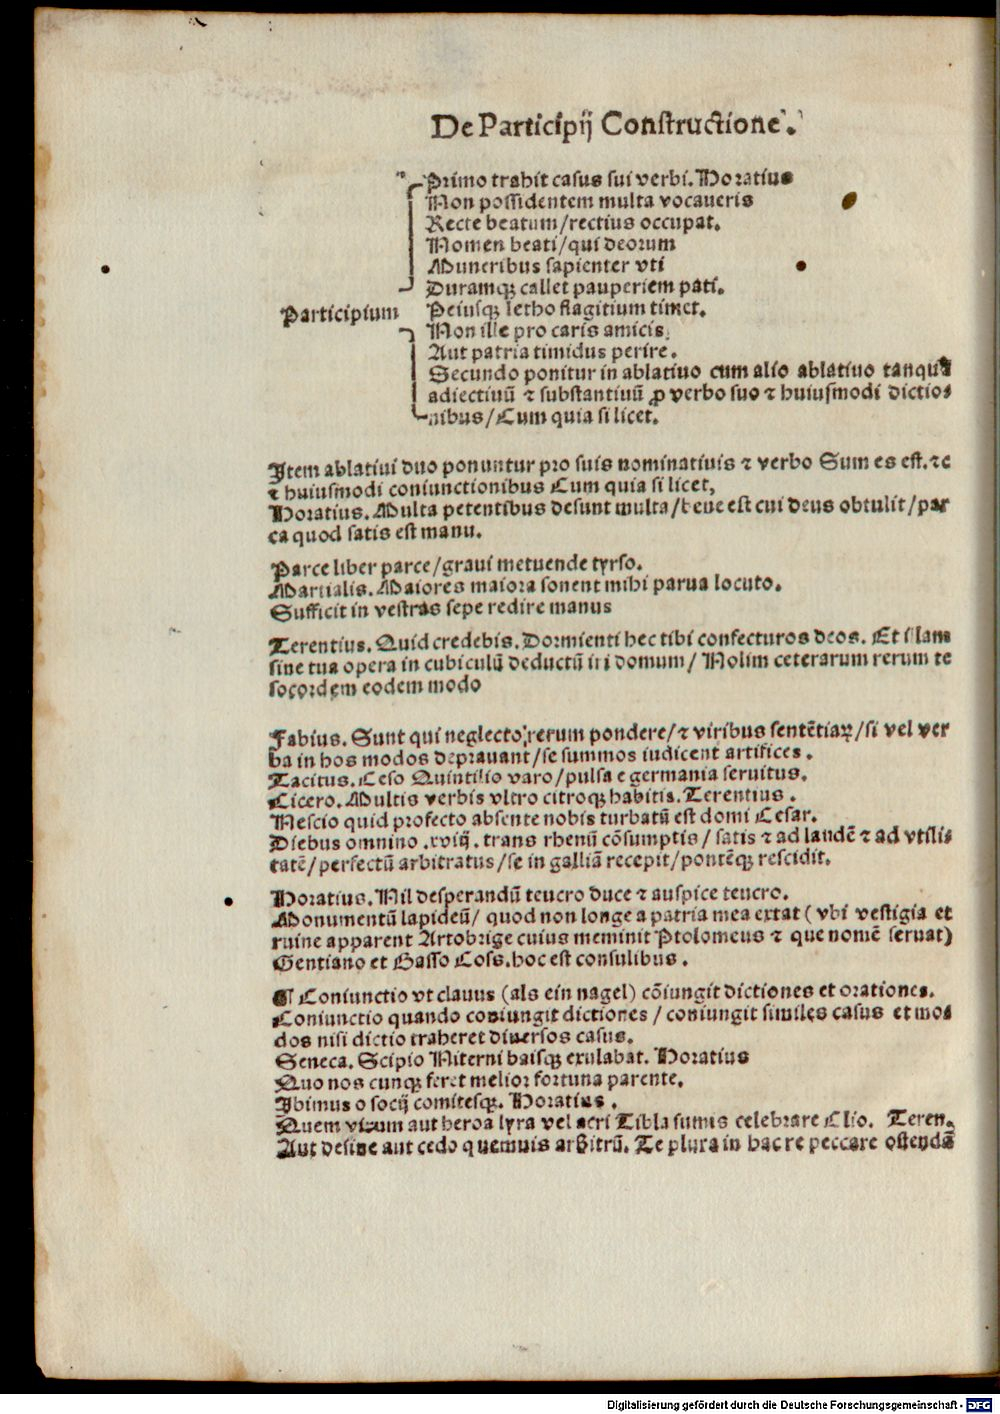 De Participij Constructione.
Primo trahit casus sui verbi. Horatius
Non possidentem multa vocaueris
Recte beatum/rectius occupat.
Nomen beati/qui deorum
Muneribus sapienter vti
Duramqꝫ callet pauperiem pati.
Participium
Peiusqꝫ letho flagitium timet.
Non ille pro caris amicis
Aut patria timidus perire.
Secundo ponitur in ablatiuo cum alio ablatiuo tanquã
adiectiuũ ⁊ substantiuũ ꝓ verbo suo ⁊ huiusmodi dictio⸗
nibus/Cum quia si licet.
Item ablatiui duo ponuntur pro suis nominatiuis ⁊ verbo Sum es est. ⁊c
⁊ huiusmodi coniunctionibus Cum quia si licet,
Horatius. Multa petentibus desunt multa/bene est cui deus obtulit/par
ca quod satis est manu.
Parce liber parce/graui metuende tyrso.
Martialis. Maiores maiora sonent mihi parua locuto.
Sufficit in vestras sepe redire manus
Terentius. Quid credebis. Dormienti hec tibi confecturos deos. Et illam
sine tua opera in cubiculũ deductũ iri domum/ Nolim ceterarum rerum te
socordem eodem modo
Fabius. Sunt qui neglecto rerum pondere/⁊ viribus sentẽtiaꝝ/si vel ver
ba in hos modos deprauant/se summos iudicent artifices.
Tacitus. Ceso Quintilio varo/pulsa e germania seruitus.
Cicero. Multis verbis vltro citroqꝫ habitis. Terentius.
Nescio quid profecto absente nobis turbatũ est domi Cesar.
Diebus omnino .xviij. trans rhenũ cõsumptis/ satis ⁊ ad laudẽ ⁊ ad vtili⸗
tatẽ/perfectũ arbitratus/se in galliã recepit/pontẽqꝫ rescidit.
Horatius. Nil desperandũ teucro duce ⁊ auspice teucro.
Monumentũ lapideũ/ quod non longe a patria mea extat (vbi vestigia et
ruine apparent Artobrige cuius meminit Ptolomeus ⁊ que nomẽ seruat)
Gentiano et Basso Coss. hoc est consulibus.
¶ Coniunctio vt clauus (als ein nagel) cõiungit dictiones et orationes.
Coniunctio quando coniungit dictiones / coniungit similes casus et mo⸗
dos nisi dictio traheret diuersos casus.
Seneca. Scipio Niterni baisqꝫ exulabat. Horatius
Quo nos cunqꝫ feret melior fortuna parente.
Ibimus o socij comitesqꝫ. Horatius.
Quem virum aut heroa lyra vel acri Tibia sumis celebrare Clio. Teren.
Aut desine aut cedo quemuis arbitrũ. Te plura in hac re peccare ostendã
Digitalisierung gefördert durch die Deutsche Forschungsgemeinschaft - DFG